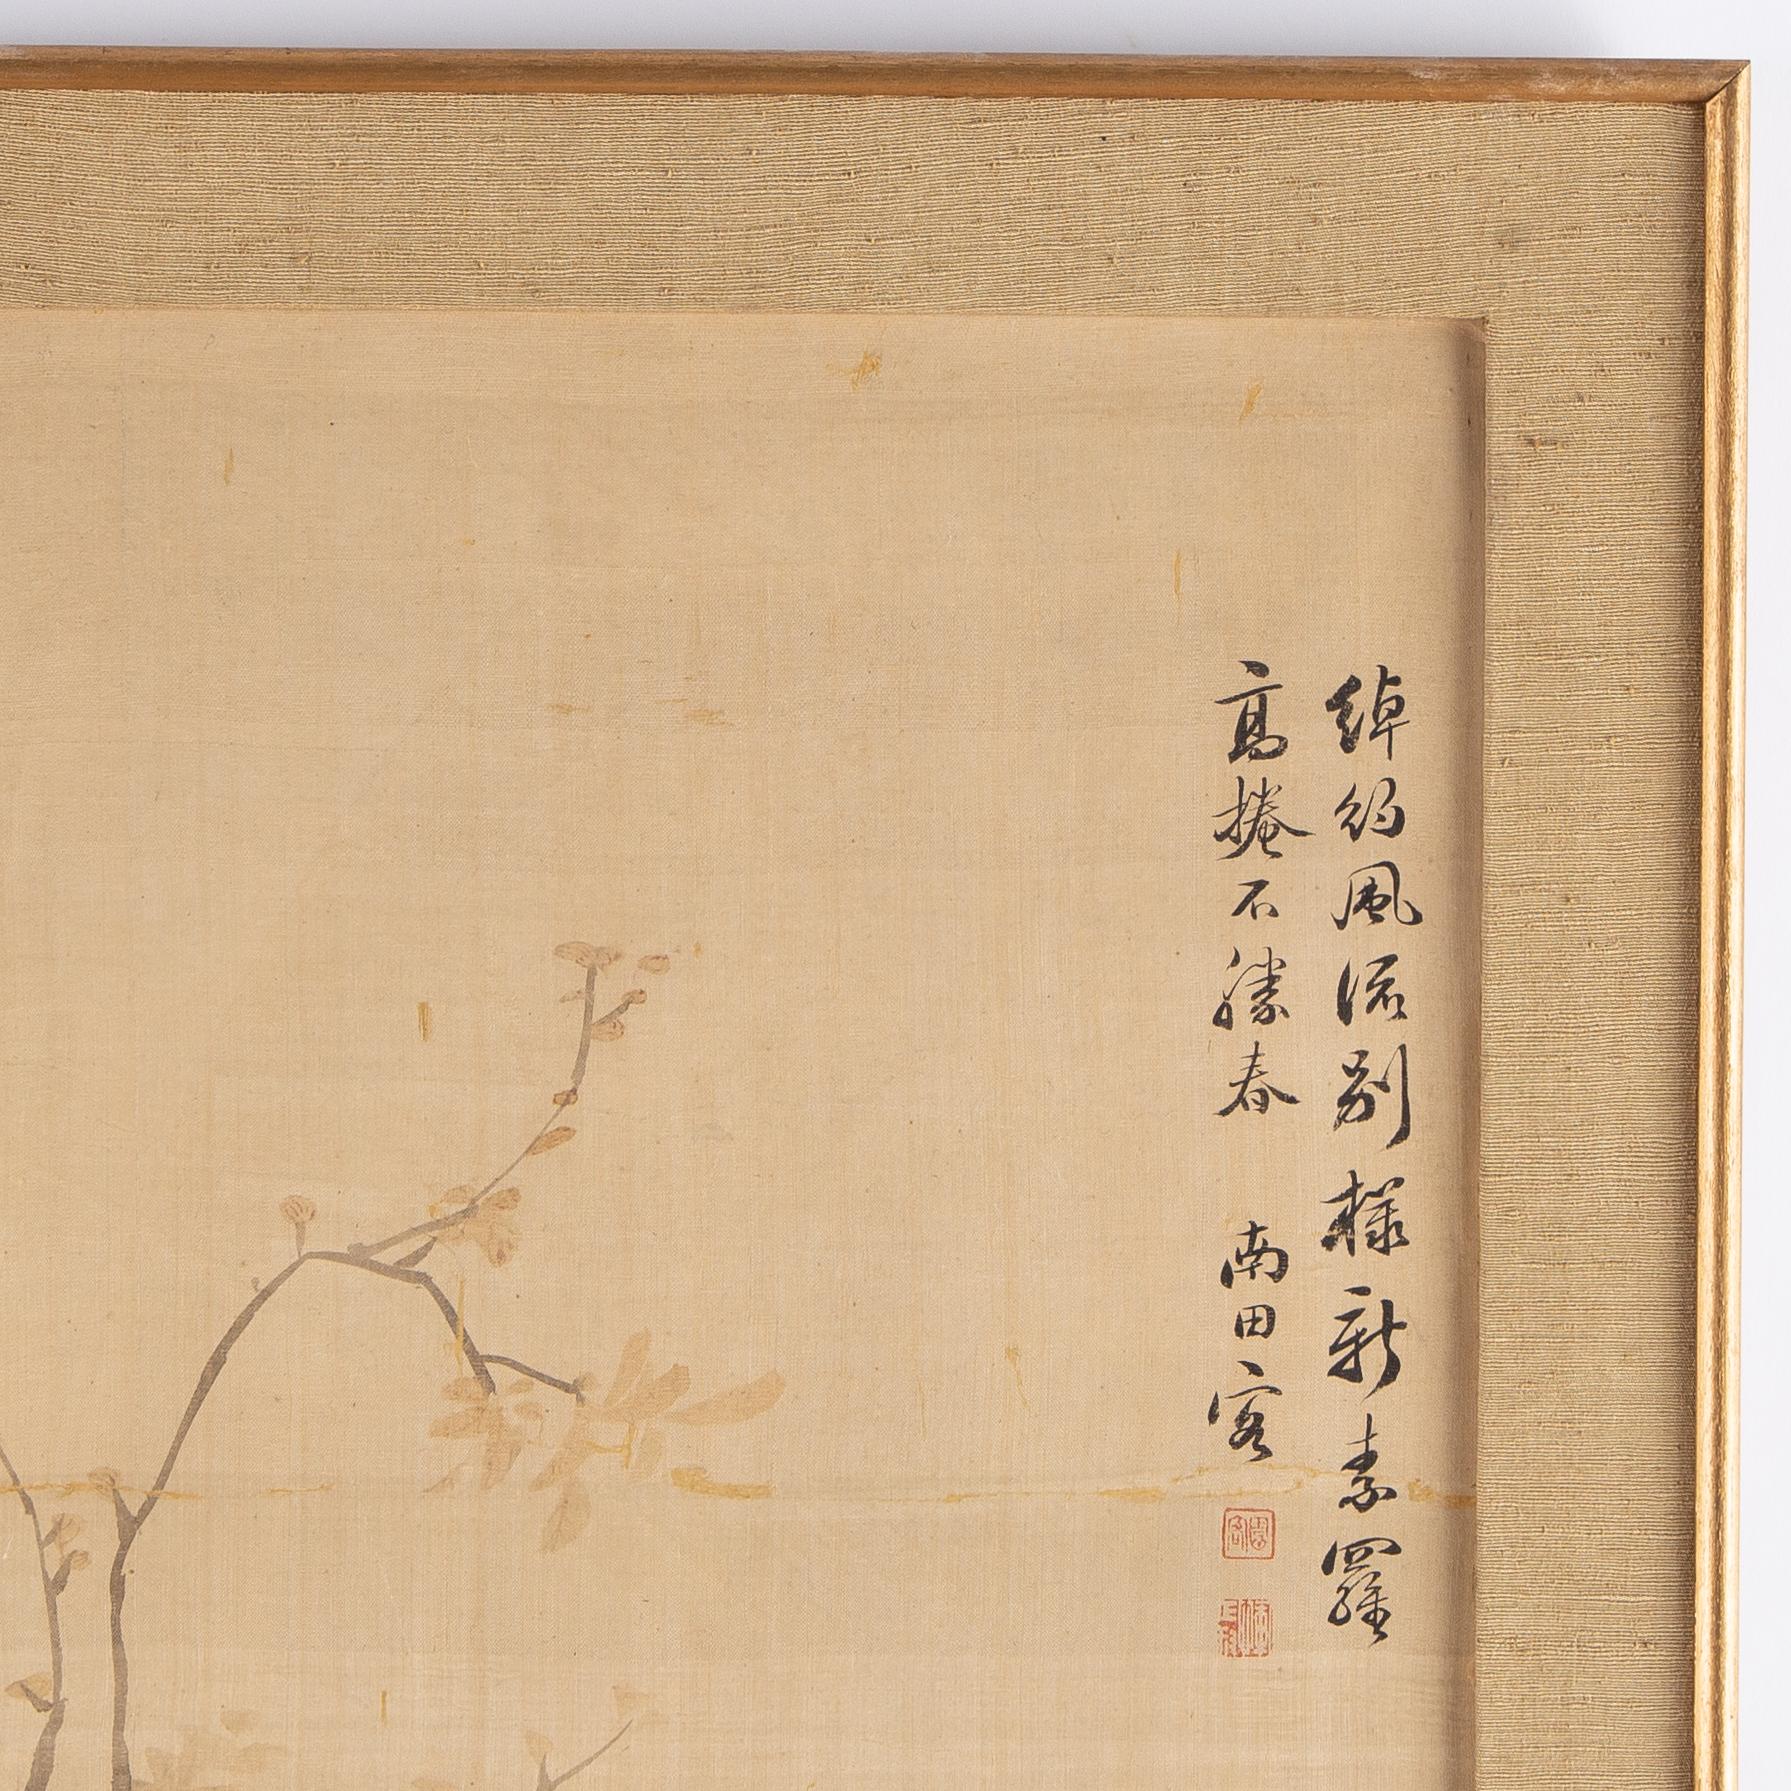 綽約風流別樣新素羅
高捲不勝春 南田客